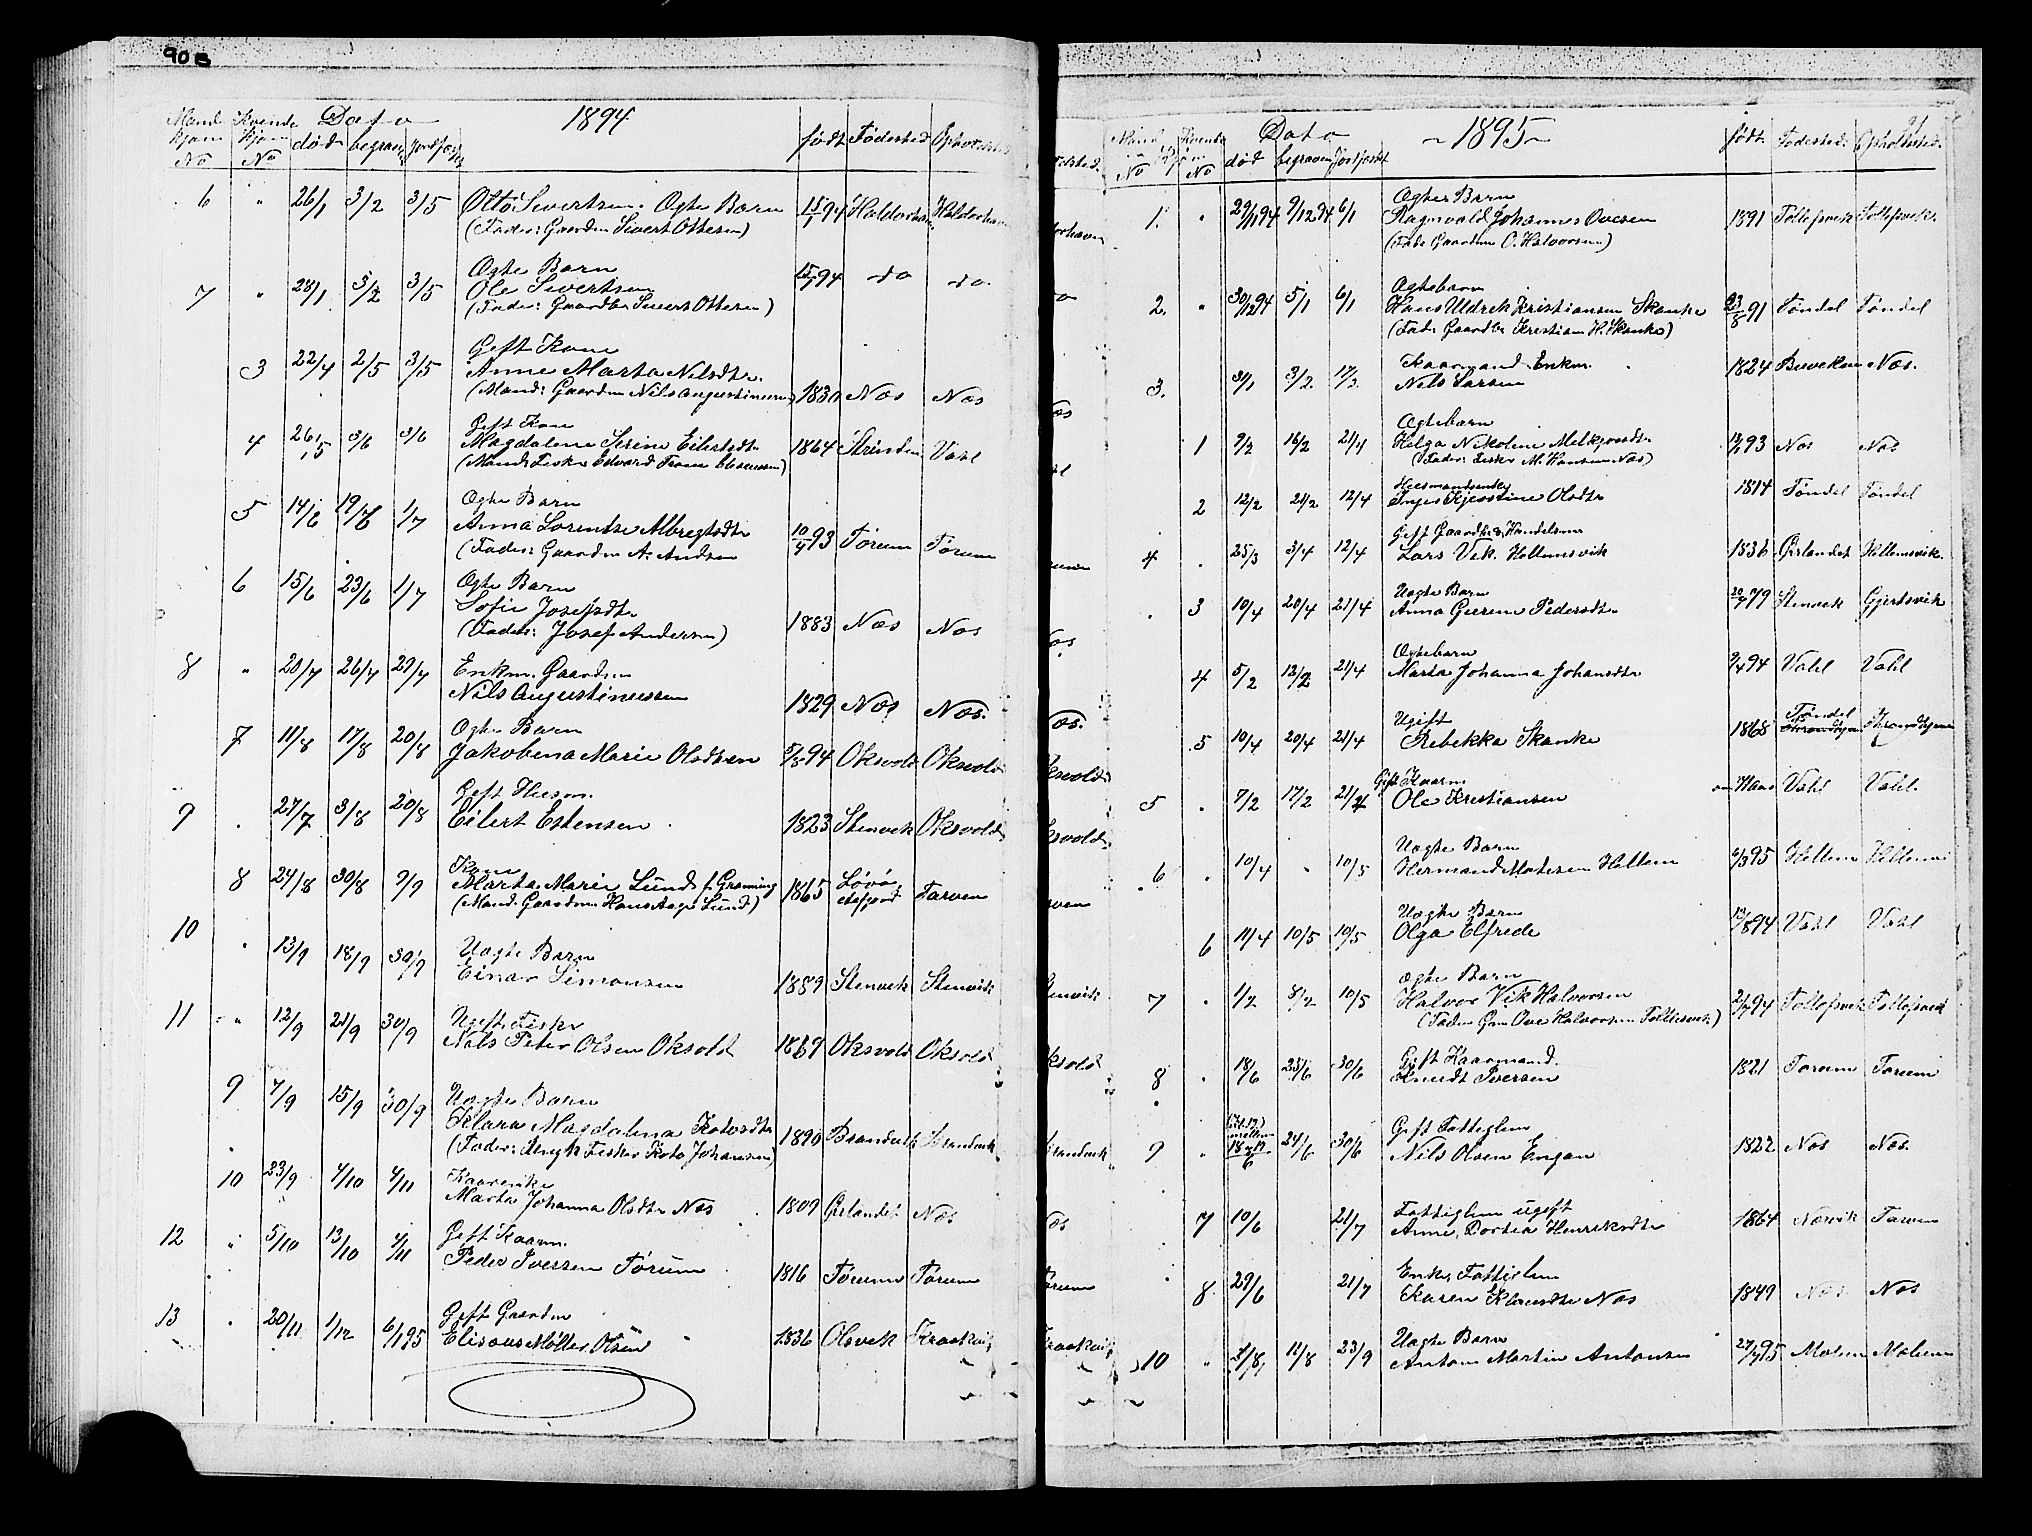 90 B
1894
Mand kjøn No | Kvinde kjøn No | Dato død | begraven | Jordfæstet | født | Fødested | Opholdsted
6 " 26/1 3/2 3/5 Otto Sivertsen. Ægte Barn 15/1 94 Haldorhavn Haldorhavn
(Fader: Gaardm Sivert Ottesen)
Ægte Barn
7 " 28/1 3/2 3/5 Ole Sivertsen 15/1 94 do do.
(Fader: Gaardbr Sivert Ottesen)
Gift Kone
3 22/4 2/5 3/5 Anne Marta Nilsdtr.
(Mand: Gaardm Nils Augustinussen) 1830 Næs Næs
Gift Kone
4 26/5 3/6 3/6 Magdalena Serine Eilertsdtr 1864 Strinden Vahl
(Mand: Fisker Edvard
Ægte Barn
5 14/6 19/6 1/7 Anna Lorentse Albregtsdtr 10/4 93 Tørum Tørum
(Fader: Gaardm A. Andsen
Ægte Barn
6 15/6 23/6 1/7 Sofie Josefsdtr
(Fader: Josef Andersen) 1883 Næs Næs
8 " 20/7 26/7 29/7 Enkm. Gaardm
Nils Augustinussen 1829 Næs Næs.
Ægte Barn
7 11/8 17/8 20/8 Jakobena Marie Olsdtren 5/5 94 Oksvold Oksvold
Gift Husm.
9 . 27/7 3/8 20/8 Eilert Estensen 1823 Stenvik Oksvold
Kone
8 24/8 30/8 9/9 Marta Marie Lund f. Grønning 1865 Løvø Tarven
(Mand. Gaardm Hans Aage Lund)
10 " 13/9 18/9 30/9 Uægte Barn
Einar Simonsen 1889 Stenvik Stenvik
11 " 12/9 21/9 30/9 Ugift Fisker
Nils Peter Olsen Oksvold 1869 Oksvold Oksvold
9 7/9 15/9 30/9 Uægte Barn
Klara Magdalena Kotosdtr 1890 Brandvik Brandvik
(Fader: Ungk Fisker Koto Johansen)
10 23/9 4/10 4/11 Kaarenke
Marta Johanna Olsdtr Næs 1809 Ørlandet Næs
12 " 5/10 13/10 4/11 Gift Kaarm.
Peder Iversen Tørum 1816 Tørum Tørum
13 . 20/11 1/12 6/1 95 Gift Gaardm
Elisæus Møller Olsen 1836 Olsvik Kraakvik
- 1895 -
Mand kjøn No | Kvinde kjøn No | Dato død | begraven | Jordfæstet | født. | Fødested. | Opholdsted.
Ægte Barn
1. " 29/11 94 9/12 94 6/1 Ragnvald Johannes Ovesen 1891 Tollefsvik Tollefsvik.
(Fader Gaardm O. Halvorsen)
Ægtebarn
2. " 30/12 94 5/1 6/1 Hans Uldrek Kristiansen Skanke 23/8 91 Tøndel Tøndel
(Fad: Gaardbr Kristian H. Skanke)
Kaarmand Enkm.
3. 31/1 3/2 17/2 Nils Larsen 1824 Næs.
Ægtebarn
1 9/2 16/2 21/4 Helga Nikoline Melkjorsdtr 93 Næs Næs
(Fader: Fisker M. Hansen Næs)
Husmandsenke
2 12/2 21/2 12/4 Inger Kjerstine Olsdtr 1814 Tøndel Tøndel
Gift Gaardbr & Handelsm
4 . 25/3 3/4 12/4 Lars Vik. Hellemsvik 1836 Ørlandet Hellemsvik.
Uægte Barn
3 10/4 20/4 21/4 Anna Pedersdtr 79 Stenvik Gjertsvik
Ægtebarn
4 5/2 12/2 21/4 Marta Johanna Johansdtr 94 Vahl Vahl
Ugift
5 10/4 20/4 21/4 Rebekka Skanke 1868 Tøndel
Gift Kaarm
5 . 7/2 17/2 21/4 Ole Kristiansen Vahl Vahl.
Uægte Barn
6 . 10/4 " 10/5 Hermand Mortesen Hellem 95 Hellem Hellem
Uægte Barn
6 11/4 10/5 10/5 Olga Elfrede 94 Vahl Vahl
Ægte Barn
7 . 1/2 8/2 10/5 Halvor Vik Halvorsen 94 Tollefsvik Tollefsvik
(Fader Gm Ove Halvorsen Tollefsvik)
Gift Kaarmand.
8 . 18/6 25/6 30/6 Knudt Iversen 1821 Tørum Tørum
Gift Fattiglem
9 " mellem 18 og 19/6 24/6 30/6 Nils Olsen Engan 1822 Næs Næs.
Fattiglem ugift
7 10/6 21/7 Anne Dortea Henriksdtr 1864 Næsvik Tarven
Enke, Fattiglem
8 29/6 21/7 Karen Næs 1849 Næs Næs
Uægte Barn
10 " 4/8 11/8 23/9 Anton Martin Antonsen 95 Mælen Mælen